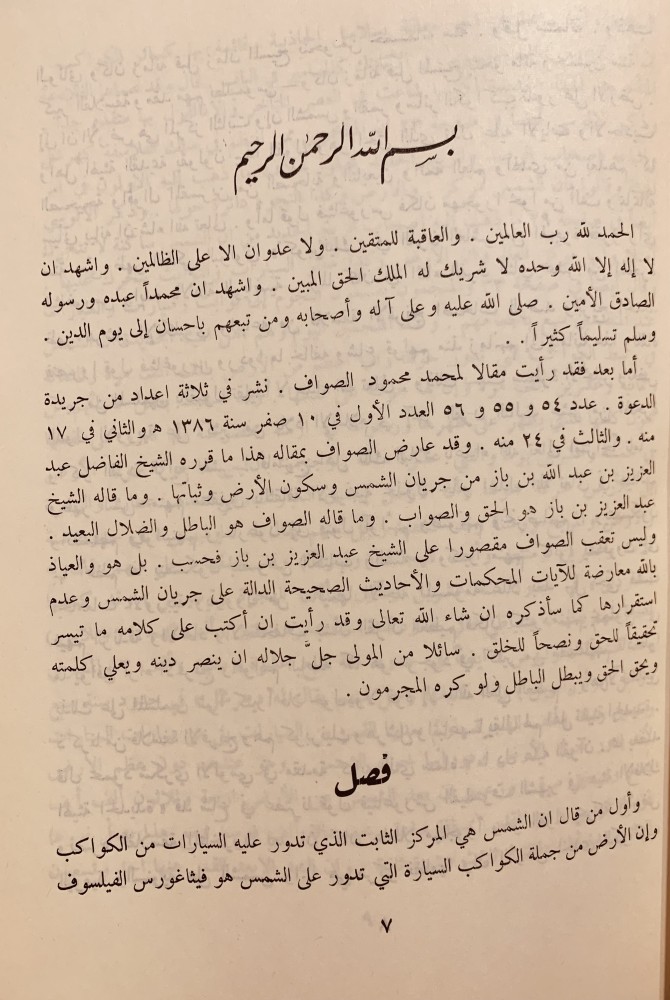 بسم الله الرحمن الرحيم
الحمد لله رب العالمين . والعاقبة للمتقين . ولا عدوان الا على الظالمين . واشهد ان
لا إله إلا الله وحده لا شريك له الملك الحق المبين . واشهد ان محمداً عبده ورسوله
الصادق الأمين . صلى الله عليه وعلى آله وأصحابه ومن تبعهم باحسان إلى يوم الدين .
وسلم تسليماً كثيراً . .
أما بعد فقد رأيت مقالا لمحمد محمود الصواف . نشر في ثلاثة اعداد من جريدة
الدعوة . عدد ٥٤ و ٥٥ و ٥٦ العدد الأول في ١٠ صفر سنة ١٣٨٦ ه والثاني في ١٧
منه . والثالث في ٢٤ منه . وقد عارض الصواف بمقاله هذا ما قرره الشيخ الفاضل عبد
العزيز بن عبد الله بن باز من جريان الشمس وسكون الأرض وثباتها . وما قاله الشيخ
عبد العزيز بن باز هو الحق والصواب . وما قاله الصواف هو الباطل والضلال البعيد .
وليس تعقب الصواف مقصورا على الشيخ عبد العزيز بن باز فحسب . بل هو والعياذ
بالله معارضة للآيات المحكمات والأحاديث الصحيحة الدالة على جريان الشمس وعدم
استقرارها كما سأذكره ان شاء الله تعالى وقد رأيت ان أكتب على كلامه ما تيسر
تحقيقاً للحق ونصحاً للخلق . سائلا من المولى جلَّ جلاله ان ينصر دينه ويعلي كلمته
ويحق الحق ويبطل الباطل ولو كره المجرمون .
فصل
وأول من قال ان الشمس هي المركز الثابت الذي تدور عليه السيارات من الكواكب
وإن الأرض من جملة الكواكب السيارة التي تدور على الشمس هو فيثاغورس الفيلسوف
٧